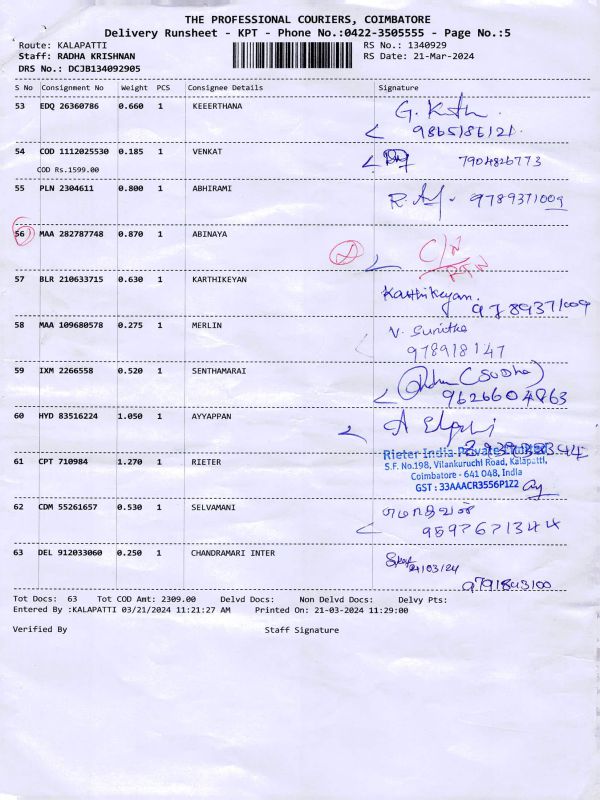 THE PROFESSIONAL COURIERS, COIMBATORE
Delivery Runsheet - KPT - Phone No.:0422-3505555 - Page No.:5
Route: KALAPATTI RS No.: 1340929
Staff: RADHA KRISHNAN RS Date: 21-Mar-2024
DRS No.: DCJB134092905
S No Consignment No Weight PCS Consignee Details Signature
53 EDQ 26360786 0.660 1 KEEERTHANA
9865186121
54 COD 1112025530 0.185 1 VENKAT 7904826773
COD Rs.1599.00
55 PLN 2304611 0.800 1 ABHIRAMI 9789371009
56 MAA 282787748 0.870 1 ABINAYA C/N
RTN
57 BLR 210633715 0.630 1 KARTHIKEYAN Karthikeyan.
9789371009
58 MAA 109680578 0.275 1 MERLIN V. Sunitha
978918147
59 IXM 2266558 0.520 1 SENTHAMARAI (SUDHA)
9626604863
60 HYD 83516224 1.050 1 AYYAPPAN
Rieter India Private Limited
61 CPT 710984 1.270 1 RIETER S.F. No.198, Vilankuruchi Road, Kalapatti,
Coimbatore - 641 048, India
GST : 33AAACR3556P1Z2
62 CDM 55261657 0.530 1 SELVAMANI
9597671344
63 DEL 912033060 0.250 1 CHANDRAMARI INTER 21/03/24
9791843100
Tot Docs: 63 Tot COD Amt: 2309.00 Delvd Docs: Non Delvd Docs: Delvy Pts:
Entered By :KALAPATTI 03/21/2024 11:21:27 AM Printed On: 21-03-2024 11:29:00
Verified By Staff Signature